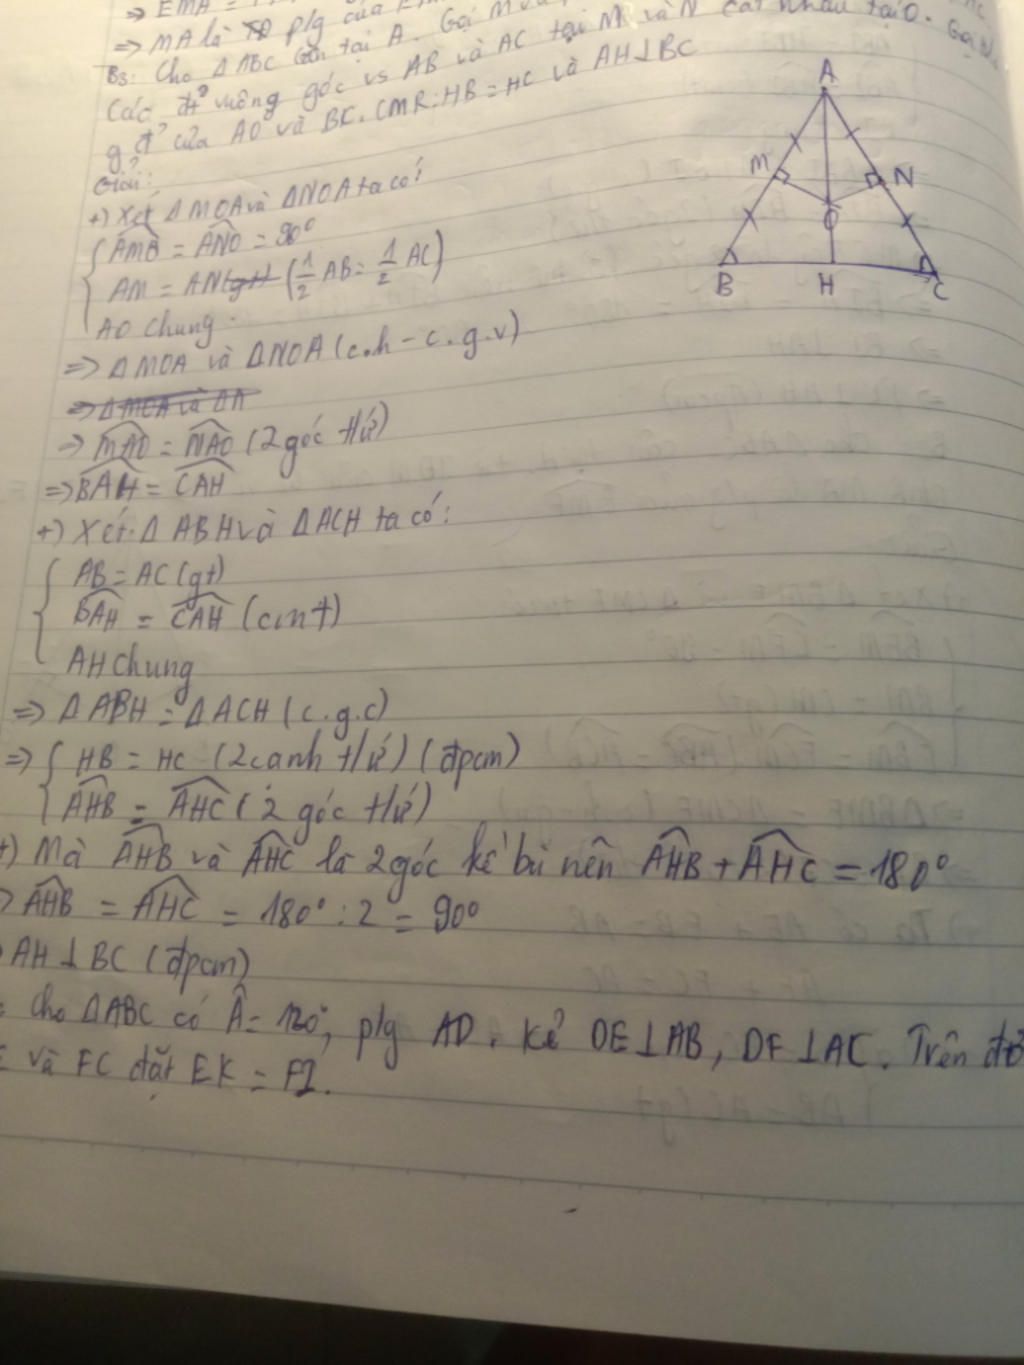 ⇒ EMA =
⇒ MA là p/g của
B3: Cho ΔABC cân tại A. Gọi M và
Các đt² vuông góc vs AB và AC tại M và N cắt nhau tại O. Gọi H
g đ² của AO và BC. CMR: HB = HC và AH⊥BC
Giải:
+) Xét ΔMOA và ΔNOA ta có:
AMB = ANO = 90°
AM = AN (gt) (1/2 AB = 1/2 AC)
AO chung
⇒ ΔMOA và ΔNOA (c.h - c.g.v)
⇒ ΔMOA và ΔN
⇒ MAO = NAO (2 góc t/ứ)
⇒ BAH = CAH
+) Xét ΔABH và ΔACH ta có:
AB = AC (gt)
BAH = CAH (cmt)
AH chung
⇒ ΔABH = ΔACH (c.g.c)
⇒ HB = HC (2 cạnh t/ứ) (đpcm)
AHB = AHC (2 góc t/ứ)
+) Mà AHB và AHC là 2 góc kề bù nên AHB + AHC = 180°
AHB = AHC = 180° : 2 = 90°
AH⊥BC (đpcm)
Cho ΔABC có Â = 120°, p/g AD. Kẻ DE⊥AB, DF⊥AC. Trên
và FC đặt EK = FI.
A
M
N
O
B
H
C